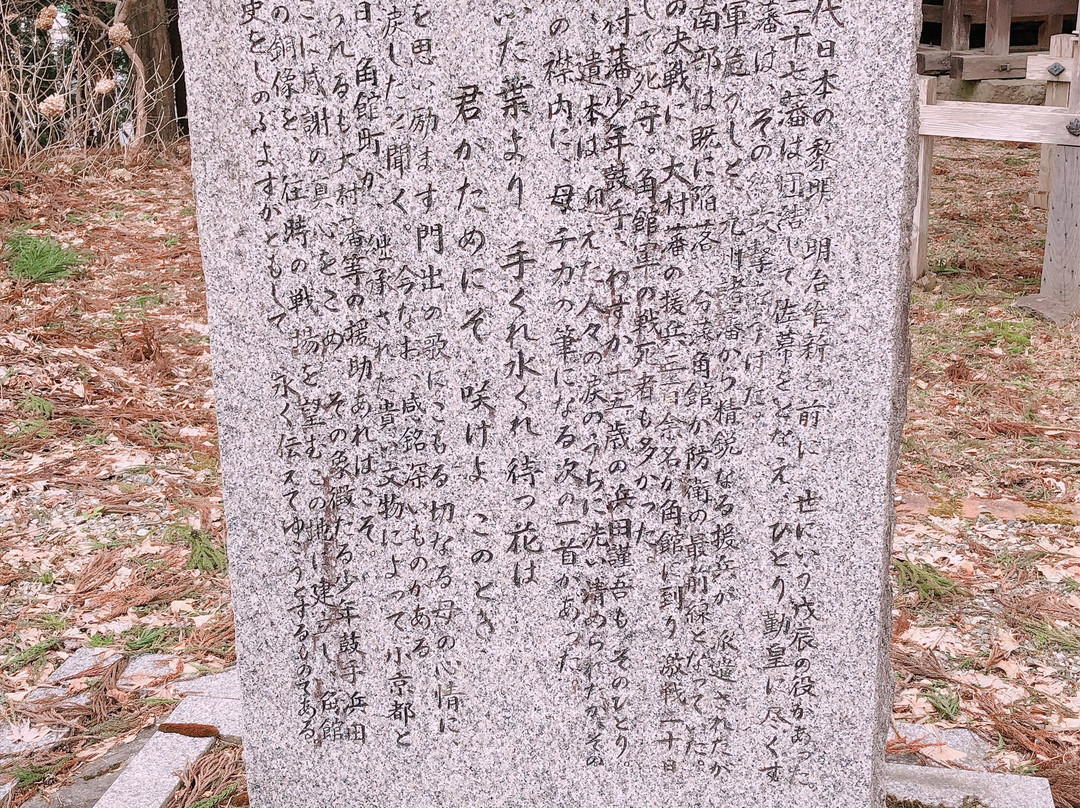 代日本の黎明、明治維新を前に、世にいう戊辰の役があった。
二十七藩は団結して佐幕をとなえ、ひとり勤皇に尽くす
藩は、その総攻撃をうけた。
軍危うしと、九州諸藩から精鋭なる援兵が、派遣されたが
南部は既に陥落、今は角館が防衛の最前線となっていた。
の決戦に、大村藩の援兵三百余名が角館に到り、激戦二十日
して死守。角館軍の戦死者も多かった。
村藩少年鼓手、わずか十五歳の浜田謹吾も、そのひとり。
、遺体は、仰えた人々の涙のうちに洗い清められたが、その
の襟内に、母チカの筆になる次の一首があった
いた葉より 手くれ水くれ 待つ花は
君がためにぞ 咲けよ このとき
を思い励ます門出の歌にこもる切なる母の心情に、
戻したと聞く。今なお、感銘深いものがある
日、角館町が、継承された貴い文物によって小京都と
られるも大村藩等の援助あればこそ。
こに感謝の真心をこめ、その象徴たる少年鼓手浜田
の銅像を、往時の戦場を望むこの地に建立し、角館
史をしのぶよすがともして、永く伝えてゆこうとするものである